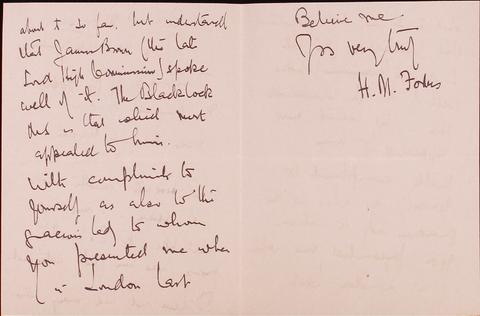 about it so far, but understand
that James Brown (the late
Lord High Commissioner) spoke
well of it. The Blacklock
one is that which most
appealed to him.
With compliments to
yourself as also to the
gracious lady to whom
you presented me when
in London last
Believe me.
Yrs very truly
H. M.